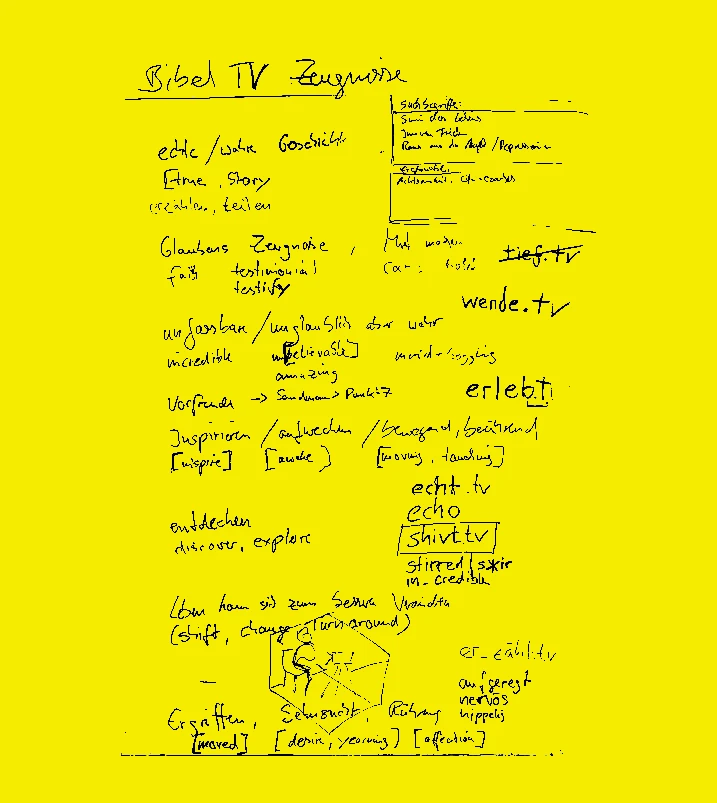 Bibel TV Zeugnisse
Suchbegriffe:
Sinn des Lebens
Innerer Frieden
Raus aus der Angst / Depression
Achtsamkeit,
echte / wahre Geschichte
[true, story
erzählen, teilen
Glaubens Zeugnisse, Mut machen
faith testimonial
testify
tief.tv
wende.tv
unfassbare / unglaublich aber wahr
incredible unbelievable]
amazing
erlebt
Vorfreude ->
Inspirieren / aufwecken / bewegend, berührend,
[inspire] [awake] [moving, touching]
echt.tv
echo
shivt.tv
stirred
in_credible
entdecken
discover, explore
Leben kann sich zum Bessern
(shift, change, turnaround)
er_zählt.tv
aufgeregt
nervös
hippelig
Ergriffen, Sehnsucht, Rührung
[moved] [desire, yearning] [affection]